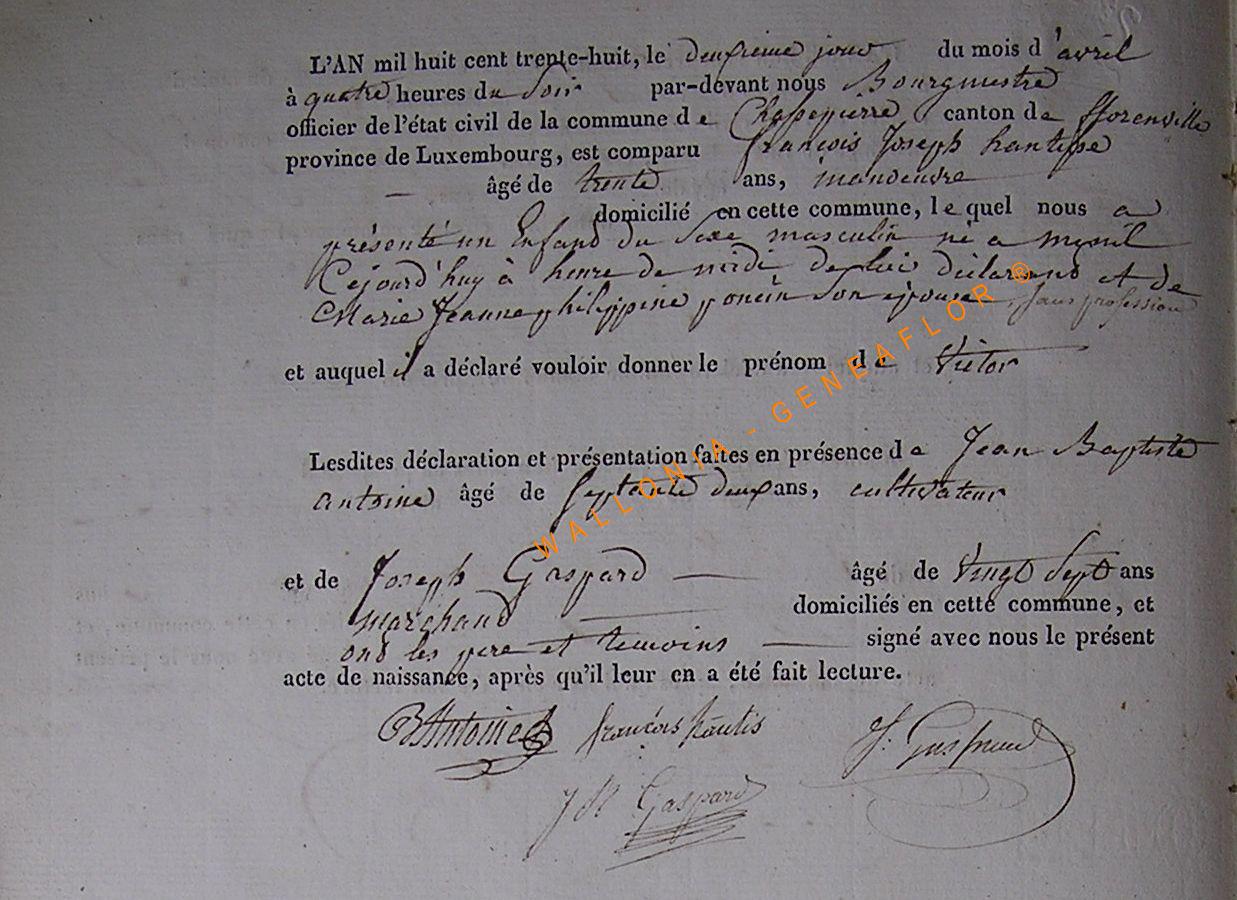 L'AN mil huit cent trente-huit, le deuxieme jour du mois d'avril
à quatre heures du soir par-devant nous Bourgmestre
officier de l'état civil de la commune de Chassepierre canton de fflorenville
province de Luxembourg, est comparu françois Joseph hantisse
— âgé de trente ans, manoeuvre
domicilié en cette commune, lequel nous a
présenté un Enfand du Sexe masculin né a
Cejourd'huy à heure de midi de lui déclarand et de
Marie Jeanne philippine poncin Son epouse, sans profession
et auquel il a déclaré vouloir donner le prénom de Victor
Lesdites déclaration et présentation faites en présence de Jean Baptiste
antoine âgé de Septante deux ans, cultivateur
et de Joseph Gaspard — âgé de Vingt Sept ans
marchand — domiciliés en cette commune, et
ond les pere et temoins — signé avec nous le présent
acte de naissance, après qu'il leur en a été fait lecture.
BAntoine françois hautis J. Gaspard
Gaspard
WALLONIA - GENEAFLOR ®